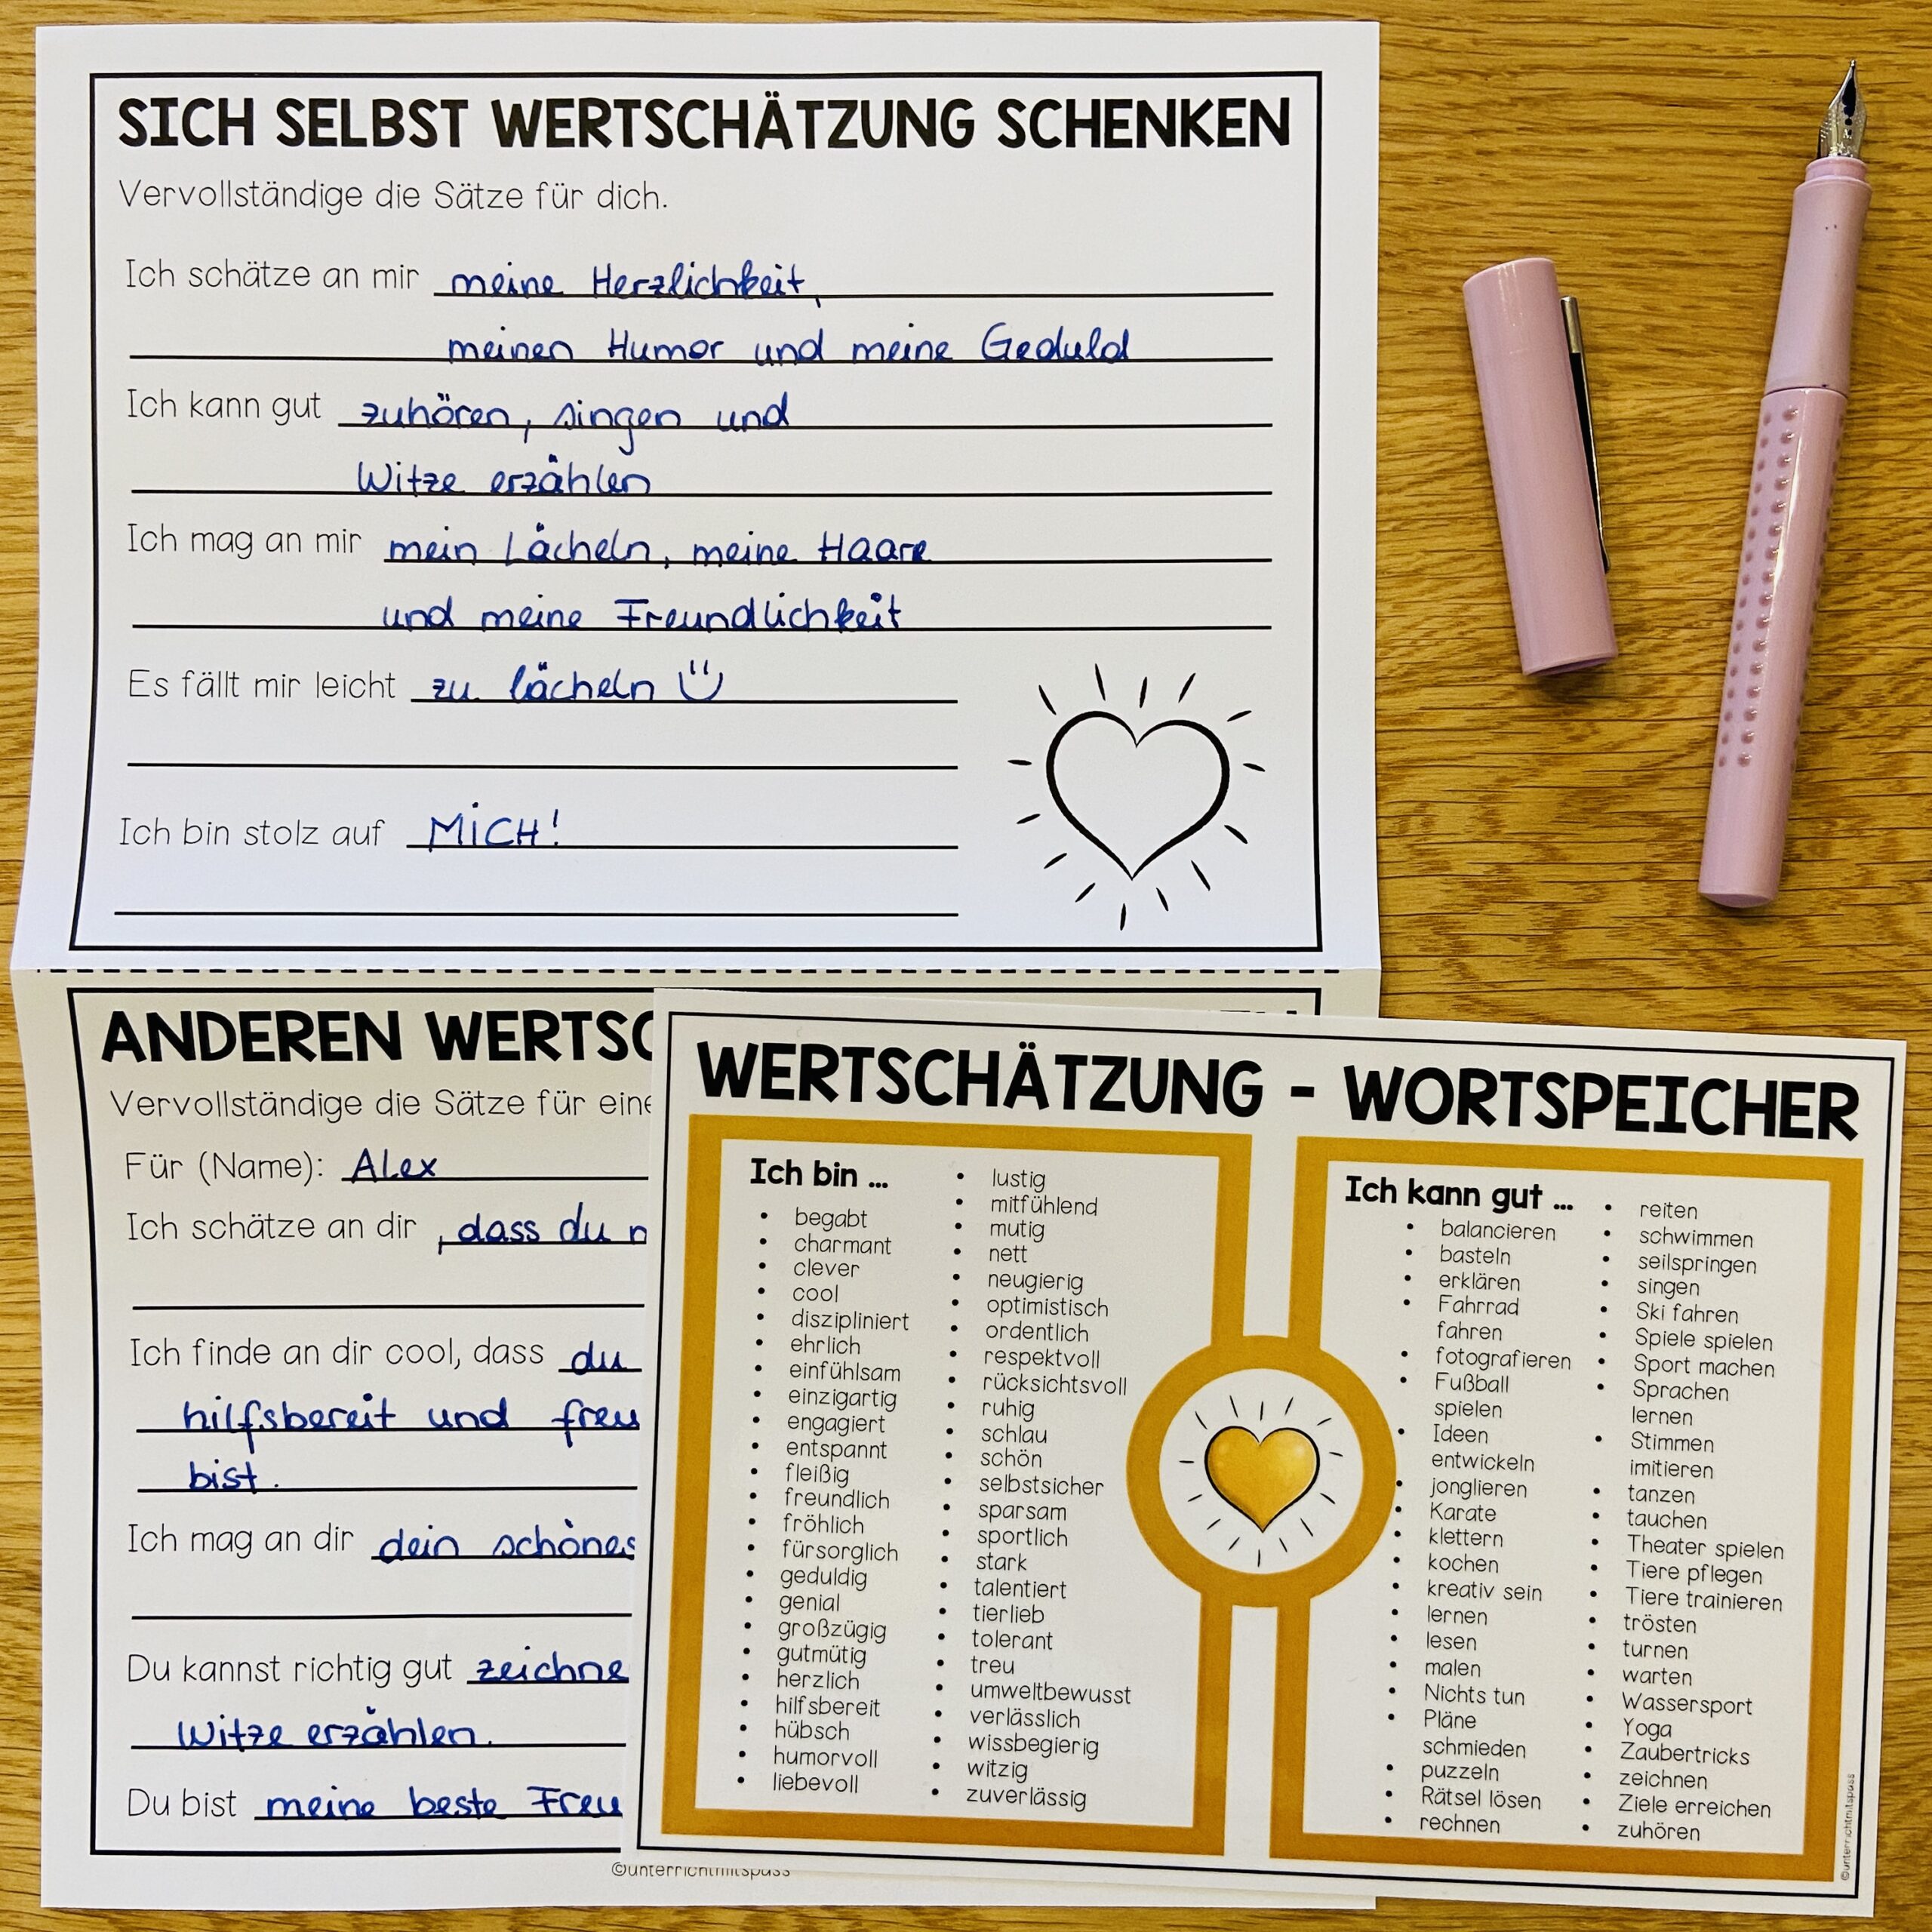 SICH SELBST WERTSCHÄTZUNG SCHENKEN
Vervollständige die Sätze für dich.
Ich schätze an mir meine Herzlichkeit,
meinen Humor und meine Geduld
Ich kann gut zuhören, singen und
Witze erzählen
Ich mag an mir mein Lächeln, meine Haare
und meine Freundlichkeit
Es fällt mir leicht zu lächeln
Ich bin stolz auf MICH!
ANDEREN WERTSC
Vervollständige die Sätze für eine
Für (Name): Alex
Ich schätze an dir , dass du
Ich finde an dir cool, dass du
hilfsbereit und freu
bist.
Ich mag an dir dein schönes
Du kannst richtig gut zeichne
Witze erzählen.
Du bist meine beste Freu
©unterrichtmitspass
WERTSCHÄTZUNG - WORTSPEICHER
Ich bin ...
begabt
charmant
clever
cool
diszipliniert
ehrlich
einfühlsam
einzigartig
engagiert
entspannt
fleißig
freundlich
fröhlich
fürsorglich
geduldig
genial
großzügig
gutmütig
herzlich
hilfsbereit
hübsch
humorvoll
liebevoll
lustig
mitfühlend
mutig
nett
neugierig
optimistisch
ordentlich
respektvoll
rücksichtsvoll
ruhig
schlau
schön
selbstsicher
sparsam
sportlich
stark
talentiert
tierlieb
tolerant
treu
umweltbewusst
verlässlich
wissbegierig
witzig
zuverlässig
Ich kann gut ...
balancieren
basteln
erklären
Fahrrad
fahren
fotografieren
Fußball
spielen
Ideen
entwickeln
jonglieren
Karate
klettern
kochen
kreativ sein
lernen
lesen
malen
Nichts tun
Pläne
schmieden
puzzeln
Rätsel lösen
rechnen
reiten
schwimmen
seilspringen
singen
Ski fahren
Spiele spielen
Sport machen
Sprachen
lernen
Stimmen
imitieren
tanzen
tauchen
Theater spielen
Tiere pflegen
Tiere trainieren
trösten
turnen
warten
Wassersport
Yoga
Zaubertricks
zeichnen
Ziele erreichen
zuhören
©unterrichtmitspass